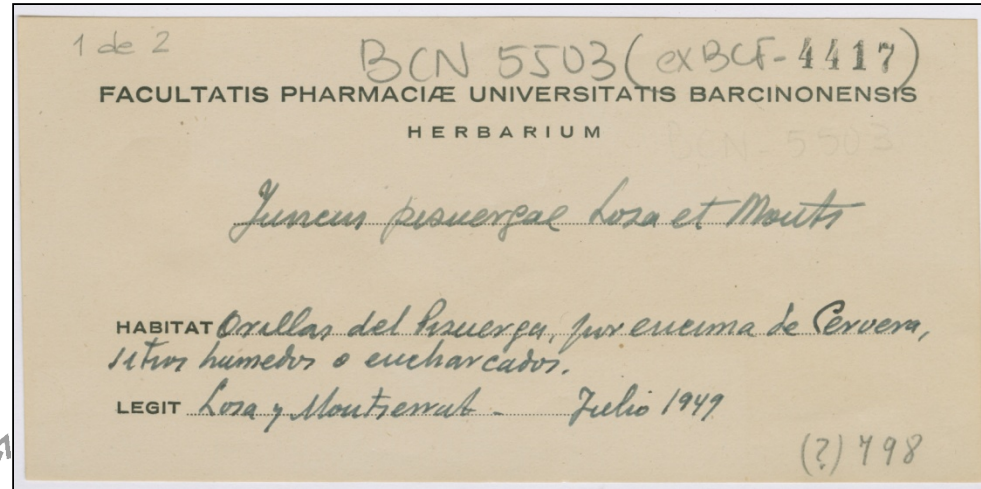 1 de 2
BCN 5503 (ex BCF-4417)
FACULTATIS PHARMACIÆ UNIVERSITATIS BARCINONENSIS
HERBARIUM
BCN-5503
Juncus pisuergae Losa et Monts
HABITAT Orillas del Pisuerga, por encima de Cervera,
sitios humedos o encharcados.
LEGIT Losa y Montserrat - Julio 1949
(?) 798